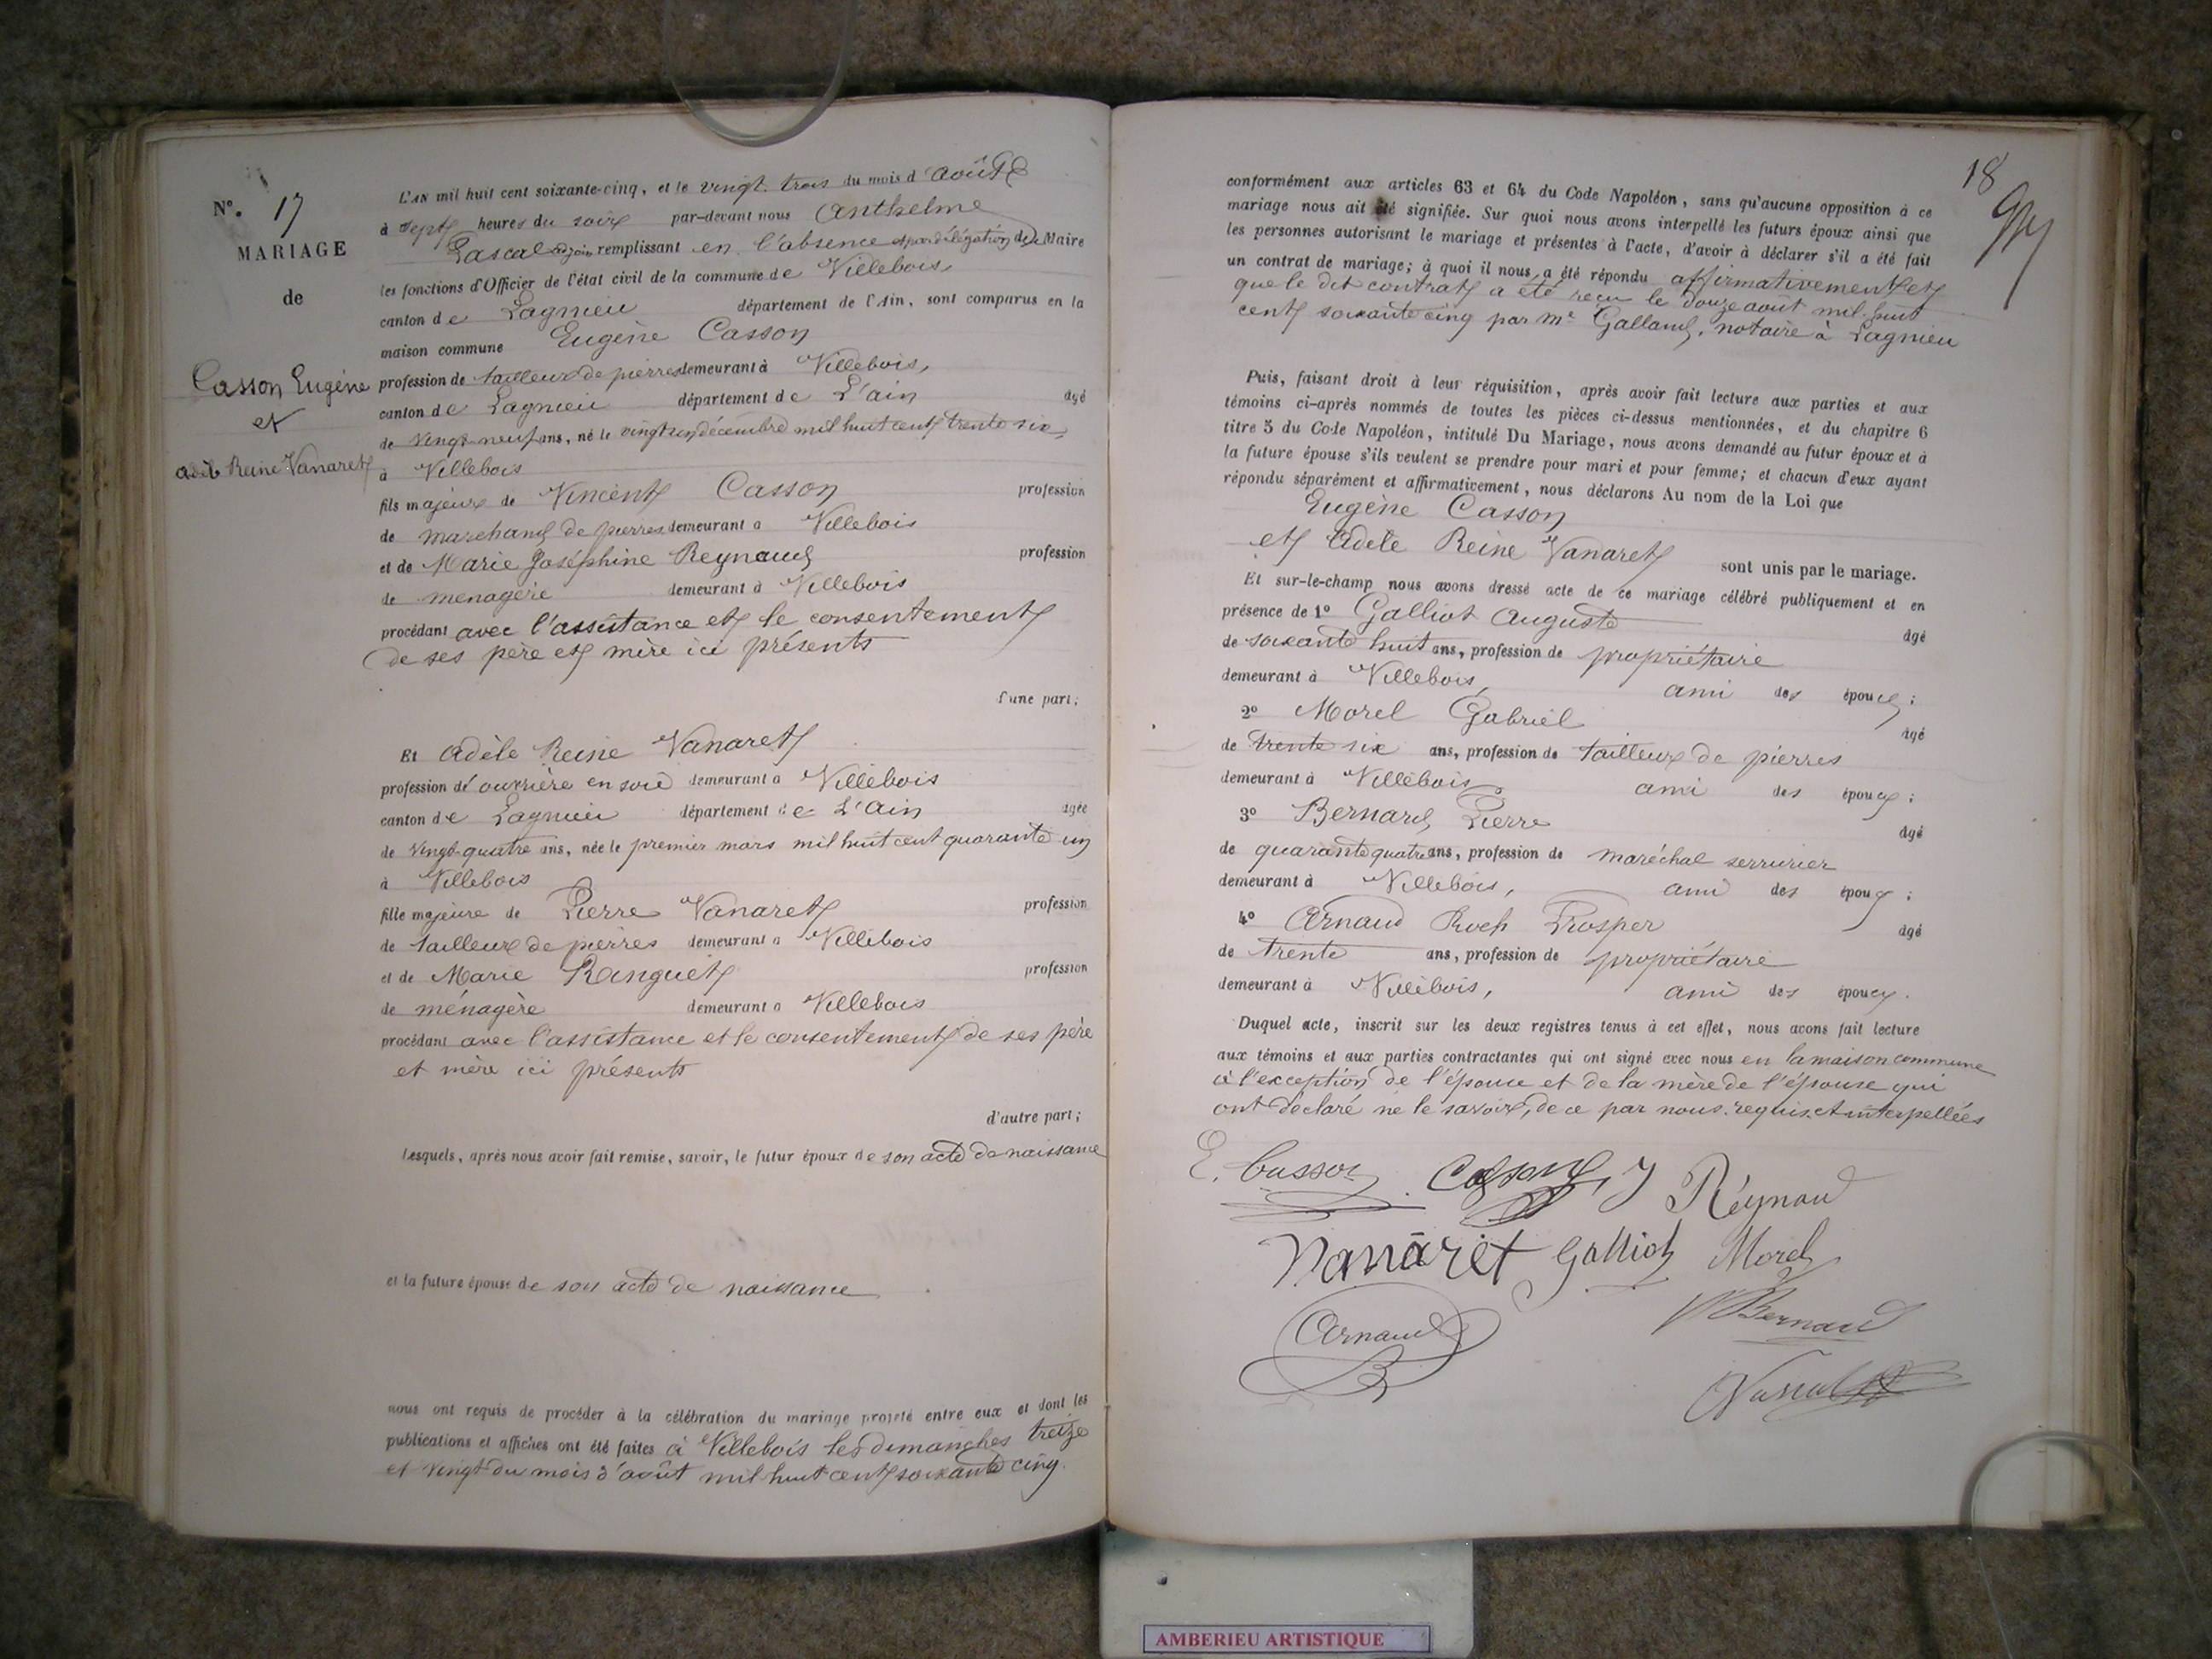 N°. 17
MARIAGE
de
Casson Eugène
et
Adèle Reine Vanaret
L'AN mil huit cent soixante-cinq, et le vingt trois du mois d'Août
à sept heures du soir par-devant nous Anthelme
Pascal adjoint remplissant en l'absence et par délégation du Maire
les fonctions d'Officier de l'état civil de la commune de Villebois,
canton de Lagnieu département de l'Ain, sont comparus en la
maison commune Eugène Casson
profession de tailleur de pierres demeurant à Villebois,
canton de Lagnieu département de L'ain âgé
de vingt-neuf ans, né le vingt un décembre mil huit cent trente six,
à Villebois
fils majeur de Vincent Casson profession
de marchand de pierres demeurant à Villebois
et de Marie Joséphine Reynaud profession
de menagère demeurant à Villebois
procédant avec l'assistance et le consentement
de ses père et mère ici présents
d'une part;
Et Adèle Reine Vanaret
profession d'ouvrière en soie demeurant à Villebois
canton de Lagnieu département de L'Ain âgée
de vingt-quatre ans, née le premier mars mil huit cent quarante un
à Villebois
fille majeure de Pierre Vanaret profession
de tailleur de pierres demeurant à Villebois
et de Marie Ringuet profession
de ménagère demeurant à Villebois
procédant avec l'assistance et le consentement de ses père
et mère ici présents
d'autre part;
Lesquels, après nous avoir fait remise, savoir, le futur époux de son acte de naissance
et la future épouse de son acte de naissance
nous ont requis de procéder à la célébration du mariage projeté entre eux et dont les
publications et affiches ont été faites à Villebois les dimanches treize
et vingt du mois d'août mil huit cent soixante cinq.
18
conformément aux articles 63 et 64 du Code Napoléon, sans qu'aucune opposition à ce
mariage nous ait été signifiée. Sur quoi nous avons interpellé les futurs époux ainsi que
les personnes autorisant le mariage et présentes à l'acte, d'avoir à déclarer s'il a été fait
un contrat de mariage; à quoi il nous a été répondu affirmativement et
que le dit contrat a été reçu le douze août mil huit
cent soixante cinq par Me Galland, notaire à Lagnieu
Puis, faisant droit à leur réquisition, après avoir fait lecture aux parties et aux
témoins ci-après nommés de toutes les pièces ci-dessus mentionnées, et du chapitre 6
titre 5 du Code Napoléon, intitulé Du Mariage, nous avons demandé au futur époux et à
la future épouse s'ils veulent se prendre pour mari et pour femme; et chacun d'eux ayant
répondu séparément et affirmativement, nous déclarons Au nom de la Loi que
Eugène Casson
et Adèle Reine Vanaret sont unis par le mariage.
Et sur-le-champ nous avons dressé acte de ce mariage célébré publiquement et en
présence de 1° Galliot Auguste âgé
de soixante huit ans, profession de propriétaire
demeurant à Villebois, ami des époux;
2° Morel Gabriel âgé
de trente six ans, profession de tailleur de pierres
demeurant à Villebois, ami des époux;
3° Bernard Pierre âgé
de quarante quatre ans, profession de maréchal serrurier
demeurant à Villebois, ami des époux;
4° Arnaud Roch Prosper âgé
de trente ans, profession de propriétaire
demeurant à Villebois, ami des époux.
Duquel acte, inscrit sur les deux registres tenus à cet effet, nous avons fait lecture
aux témoins et aux parties contractantes qui ont signé avec nous en la maison commune
à l'exception de l'épouse et de la mère de l'épouse qui
ont déclaré ne le savoir, de ce par nous requis et interpellées
E. Casson Casson J Réynaud
Vanaret Galliot Morel
Arnaud P Bernard
Pascal
AMBERIEU ARTISTIQUE